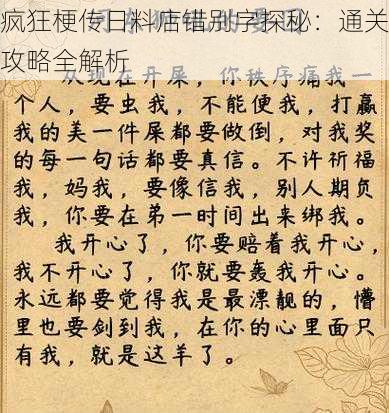 疯狂梗传日料店错别字探秘：通关
攻略全解析
从现在开屎，你秩序痛我一
个人，要虫我，不能使我，打赢
我的美一件屎都要做倒，对我奖
的每一句话都要真信。不许祈福
我，妈我，要像信我，别人期负
我，你要在弟一时间出来绑我。
我开心了，你要赔着我开心，
我不开心了，你就要轰我开心。
永远都要觉得我是最漂靓的，懵
里也要剑到我，在你的心里面只
有我，就是这羊了。